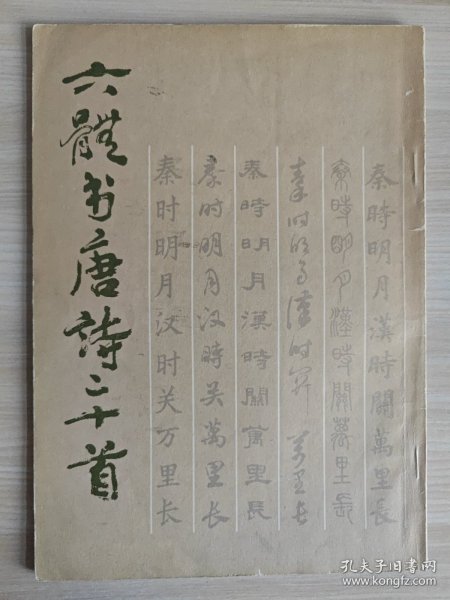 六體书唐詩二十首
秦時明月漢時關萬里長
秦時明月漢時關萬里長
秦时明月漢时関萬里長
秦時明月漢時關萬里長
秦时明月汉時关萬里长
秦时明月汉时关万里长
孔夫子旧书网
www.kongfz.com